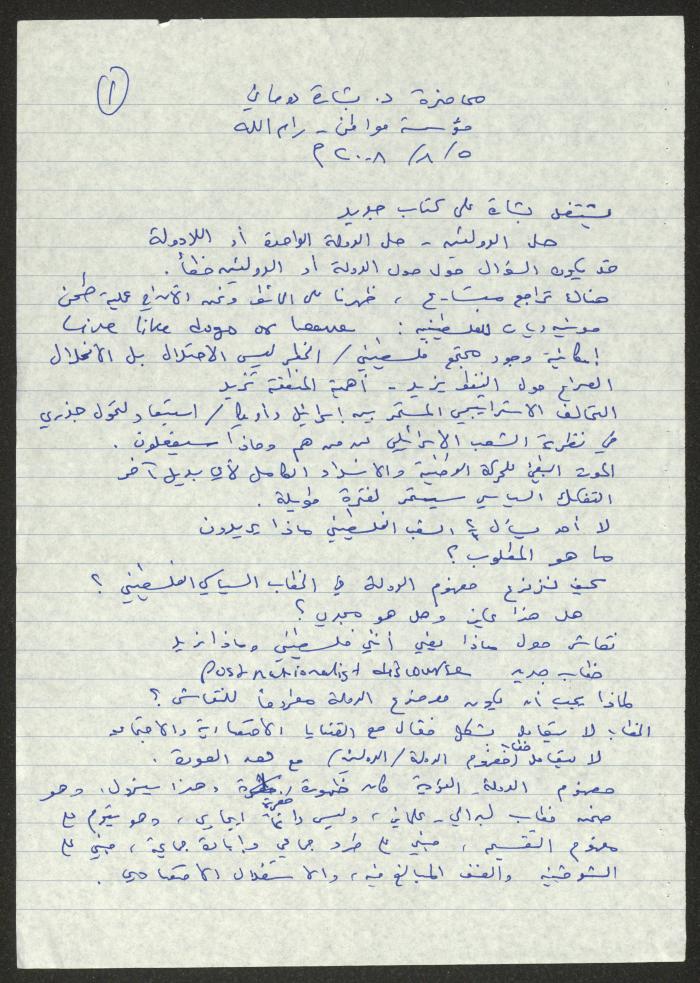 ١
محاضرة د. بشارة دوماني
مؤسسة مواطن - رام الله
٥ / ٨ / ٢٠٠٨ م
يشتغل بشارة على كتاب جديد
حل الدولتين - حل الدولة الواحدة أو اللادولة
قد يكون السؤال حول حول الدولة أو الدولتين خطأ.
هناك تراجع متسارع ، ظهرنا على الحائط ونحن الآن في عملية طحن
للفلسطينيين : Live like dogs or leave
إمكانية وجود مجتمع فلسطيني / الخطر ليس الاحتلال بل الانحلال
الصراع حول النفط يزيد - أهمية المنطقة تزيد
التحالف الاستراتيجي المستمر بين إسرائيل وأمريكا / استبعاد لتحول جذري
في نظرية الشعب الإسرائيلي لمن هم وماذا سيفعلون .
الموت البطيء للحركة الوطنية والانسداد الكامل لأي بديل آخر
التفكك السياسي سيستمر لفترة طويلة .
لا أحد يسأل الشعب الفلسطيني ماذا يريدون
ما هو المطلوب ؟
كيف نزعزع مفهوم الدولة في الخطاب السياسي الفلسطيني ؟
هل هذا جايز وهل هو مجدي ؟
نقاش حول ماذا يعني أنني فلسطيني وماذا نريد
خطاب جديد post nationalist discourse
لماذا يجب أن يكون موضوع الدولة مطروحاً للنقاش ؟
الخطاب لا يتعامل بشكل فعّال مع القضايا الاقتصادية والاجتماعية
لا يتعامل خطاب مفهوم الدولة / الدولتين / مع هذه العودة .
مفهوم الدولة القومية كان ظهوره وهذا سيزول، وهو
ضمن خطاب ليبرالي - علماني ، وليس دائماً إيجابي ، وهو يقوم على
مفهوم التقسيم ، مبني على طرد جماعي وإبادة جماعية ، مبني على
الشوفينية والعنف المبالغ فيه ، والاستغلال الاقتصادي .